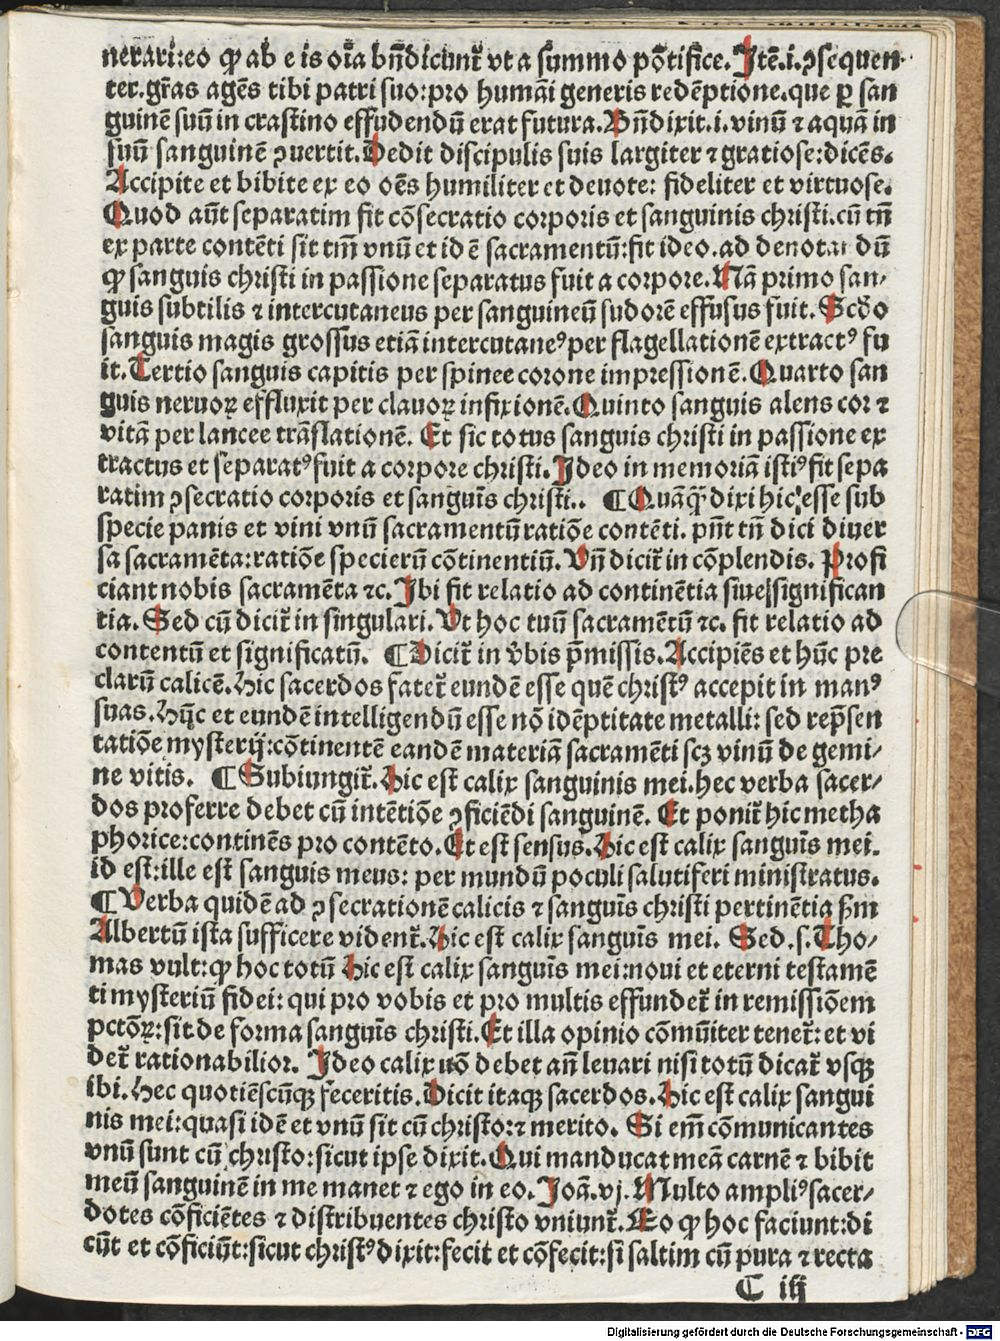 nerari: eo ꝙ ab eis oīa bn̄dicunt̄ vt a summo pōtifice. Itē .i. ꝯsequen
ter. gr̄as agēs tibi patri suo: pro humāi generis redēptione. que ꝑ san
guinē suū in crastino effudendū erat futura. Bn̄dixit .i. vinū ⁊ aquā in
suū sanguinē ꝯuertit. Dedit discipulis suis largiter ⁊ gratiose: dicēs.
Accipite et bibite ex eo oēs humiliter et deuote: fideliter et virtuose.
Quod aūt separatim fit cōsecratio corporis et sanguinis christi. cū tn̄
ex parte contēti sit tm̄ vnū et id ē sacramentū: fit ideo. ad denotandū
ꝙ sanguis christi in passione separatus fuit a corpore. Nā primo san⸗
guis subtilis ⁊ intercutaneus per sanguineū sudorē effusus fuit. Scd̄o
sanguis magis grossus etiā intercutaneꝰ per flagellationē extractꝰ fu
it. Tertio sanguis capitis per spinee corone impressionē. Quarto san
guis neruoꝝ effluxit per clauoꝝ infixionē. Quinto sanguis alens cor ⁊
vitā per lancee trāslationē. Et sic totus sanguis christi in passione ex
tractus et separatꝰ fuit a corpore christi. Ideo in memoriā istiꝰ fit sepa
ratim ꝯsecratio corporis et sanguīs christi.. ¶ Quāꝙ̄ dixi hic: esse sub
specie panis et vini vnū sacramentū ratiōe contēti. pn̄t tn̄ dici diuer
sa sacramēta: ratiōe specierū cōtinentiū. Vn̄ dicit̄ in cōplendis. Profi
ciant nobis sacramēta ⁊c. Ibi fit relatio ad continētia siue significan
tia. Sed cū dicit̄ in singulari. Vt hoc tuū sacramētū ⁊c. fit relatio ad
contentū et significatū. ¶ Dicit̄ in v̄bis p̄missis. Accipiēs et hūc pre
clarū calicē. Hic sacerdos fatet̄ eundē esse quē christꝰ accepit in manꝰ
suas. Hūc et eundē intelligendū esse nō idēptitate metalli: sed rep̄sen
tatiōe mysterij: cōtinentē eandē materiā sacramēti scꝫ vinū de gemi⸗
ne vitis. ¶ Subiungit̄. Hic est calix sanguinis mei. hec verba sacer⸗
dos proferre debet cū intētiōe ꝯficiēdi sanguinē. Et ponit̄ hic metha
phorice: continēs pro contēto. Et est sensus. Hic est calix sanguīs mei.
id est: ille est sanguis meus: per mundū poculi salutiferi ministratus.
¶ Verba quidē ad ꝯsecrationē calicis ⁊ sanguīs christi pertinētia s̄m
Albertū ista sufficere vident̄. Hic est calix sanguīs mei. Sed .s. Tho⸗
mas vult: ꝙ hoc totū Hic est calix sanguīs mei: noui et eterni testamē
ti mysteriū fidei: qui pro vobis et pro multis effundet̄ in remissiōem
pctōꝝ: sit de forma sanguīs christi. Et illa opinio cōmūiter tenet̄: et vi
det̄ rationabilior. Ideo calix nō debet an̄ leuari nisi totū dicat̄ vsqꝫ
ibi. Hec quotiēscūqꝫ feceritis. Dicit itaqꝫ sacerdos. Hic est calix sangui
nis mei: quasi idē et vnū sit cū christo: ⁊ merito. Si em̄ cōmunicantes
vnū sunt cū christo: sicut ipse dixit. Qui manducat meā carnē ⁊ bibit
meū sanguinē in me manet ⁊ ego in eo. Joā. vj. Multo ampliꝰ sacer⸗
dotes cōficiētes ⁊ distribuentes christo vniunt̄. Eo ꝙ hoc faciunt: di
cūt et cōficiūt: sicut christꝰ dixit: fecit et cōfecit: si saltim cū pura ⁊ recta
C iij
Digitalisierung gefördert durch die Deutsche Forschungsgemeinschaft - DFG